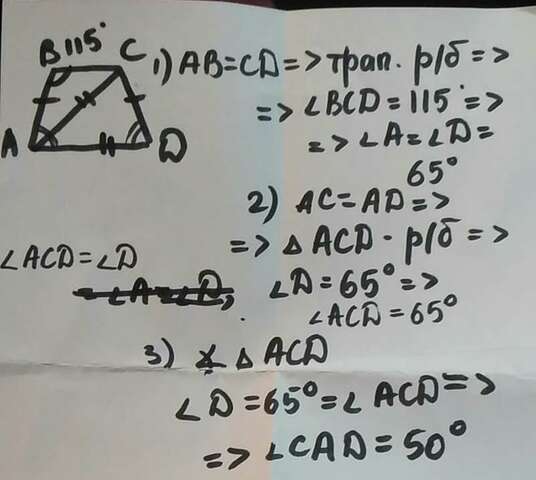 B 115° C
A D
1) AB=CD=>трап. р/б=>
=> ∠BCD=115°=>
=> ∠A=∠D=
65°
2) AC=AD=>
=> △ACD - р/б=>
∠D=65°=>
∠ACD=65°
∠ACD=∠D
=∠A=∠D,
3) △ACD
∠D=65°=∠ACD=>
=> ∠CAD=50°